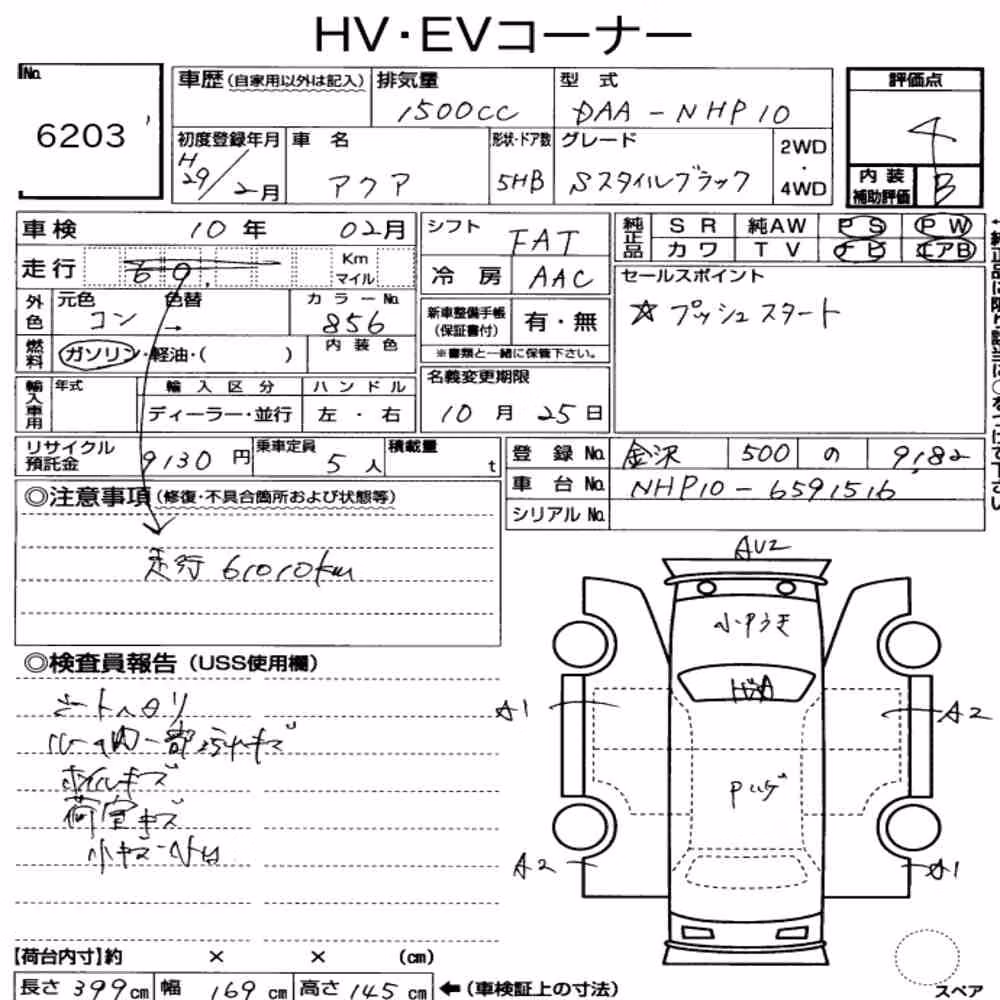 HV・EVコーナー
No.
6203
車歴(自家用以外は記入)
排気量
1500cc
型式
DAA-NHP10
評価点
4
初度登録年月
H29/2月
車名
アクア
形状・ドア数
5HB
グレード
Sスタイルブラック
2WD
・
4WD
内装
補助評価
B
車検 10年 02月
シフト
FAT
純正品
SR 純AW PS PW
カワ TV ナビ エアB
走行
69,
Km
マイル
冷房
AAC
セールスポイント
☆プッシュスタート
外色
元色
コン
色替
→
カラーNo.
856
新車整備手帳
(保証書付)
有・無
※書類と一緒に保管下さい。
燃料
ガソリン・軽油・( )
内装色
名義変更期限
10月 25日
輸入車用
年式
輸入区分
ディーラー・並行
ハンドル
左・右
リサイクル
預託金
9130円
乗車定員
5人
積載量
t
登録No.
金沢 500 の 9182
車台No.
NHP10-6591516
シリアルNo.
◎注意事項(修復・不具合箇所および状態等)
走行 61010km
◎検査員報告(USS使用欄)
シートヘタリ
ホイルキズ
荷室キズ
AU2
A1
A2
A2
A1
【荷台内寸】約 × × (cm)
長さ 399cm 幅 169cm 高さ 145cm ←(車検証上の寸法)
スペア